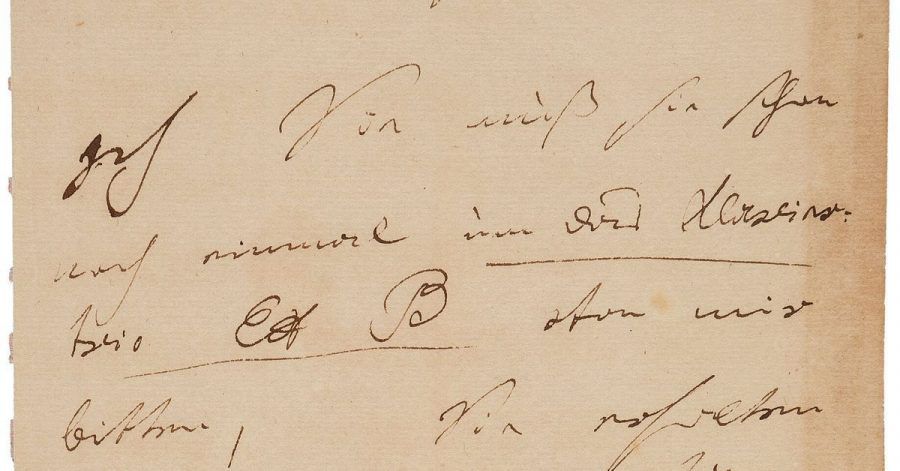 muß sie schon
noch einmal um das Klawier-
trio B von mir
bitten, Sie erhalten